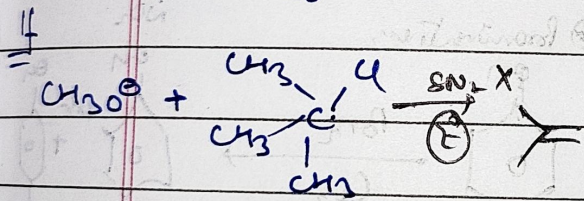 If
CH3O⊖ + CH3 Cl SN2 X
CH3 C E
CH3